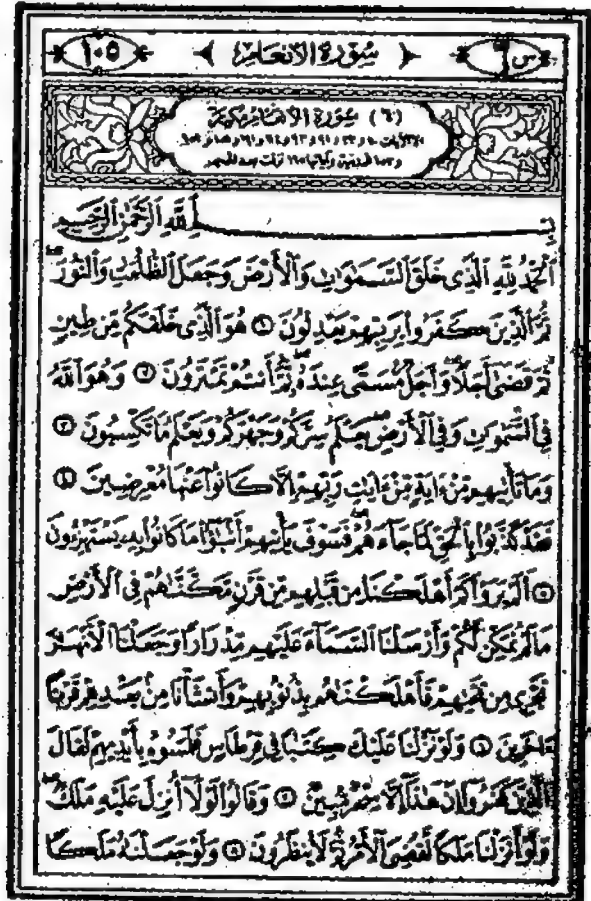 ١٠٥ سورة الأنعام
(٦) سورة الأنعام مكية
بسم الله الرحمن الرحيم
الحمد لله الذي خلق السموات والأرض وجعل الظلمت والنور
ثم الذين كفروا بربهم يعدلون ١ هو الذي خلقكم من طين
ثم قضى أجلا وأجل مسمى عنده ثم أنتم تمترون ٢ وهو الله
في السموت وفي الأرض يعلم سركم وجهركم ويعلم ما تكسبون ٣
وما تأتيهم من ءاية من ءايت ربهم إلا كانوا عنها معرضين ٤
فقد كذبوا بالحق لما جاءهم فسوف يأتيهم أنبؤا ما كانوا به يستهزءون
٥ ألم يروا كم أهلكنا من قبلهم من قرن مكنهم في الأرض
ما لم نمكن لكم وأرسلنا السماء عليهم مدرارا وجعلنا الأنهر
تجري من تحتهم فأهلكنهم بذنوبهم وأنشأنا من بعدهم قرنا
ءاخرين ٦ ولو نزلنا عليك كتبا في قرطاس فلمسوه بأيديهم لقال
الذين كفروا إن هذا إلا سحر مبين ٧ وقالوا لولا أنزل عليه ملك
ولو أنزلنا ملكا لقضي الأمر ثم لا ينظرون ٨ ولو جعلنه ملكا